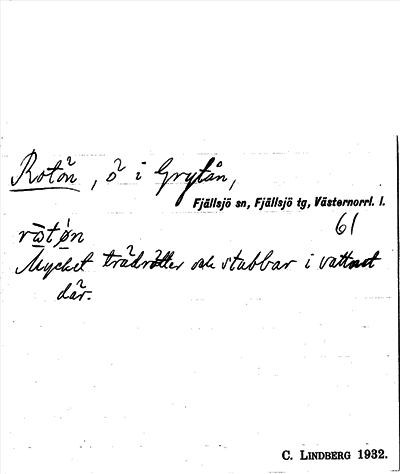 Rotön, ö i Grytån,
Fjällsjö sn, Fjällsjö tg, Västernorrl. l.
61
Mycket trädrötter och stubbar i vattnet
där.
C. LINDBERG 1932.